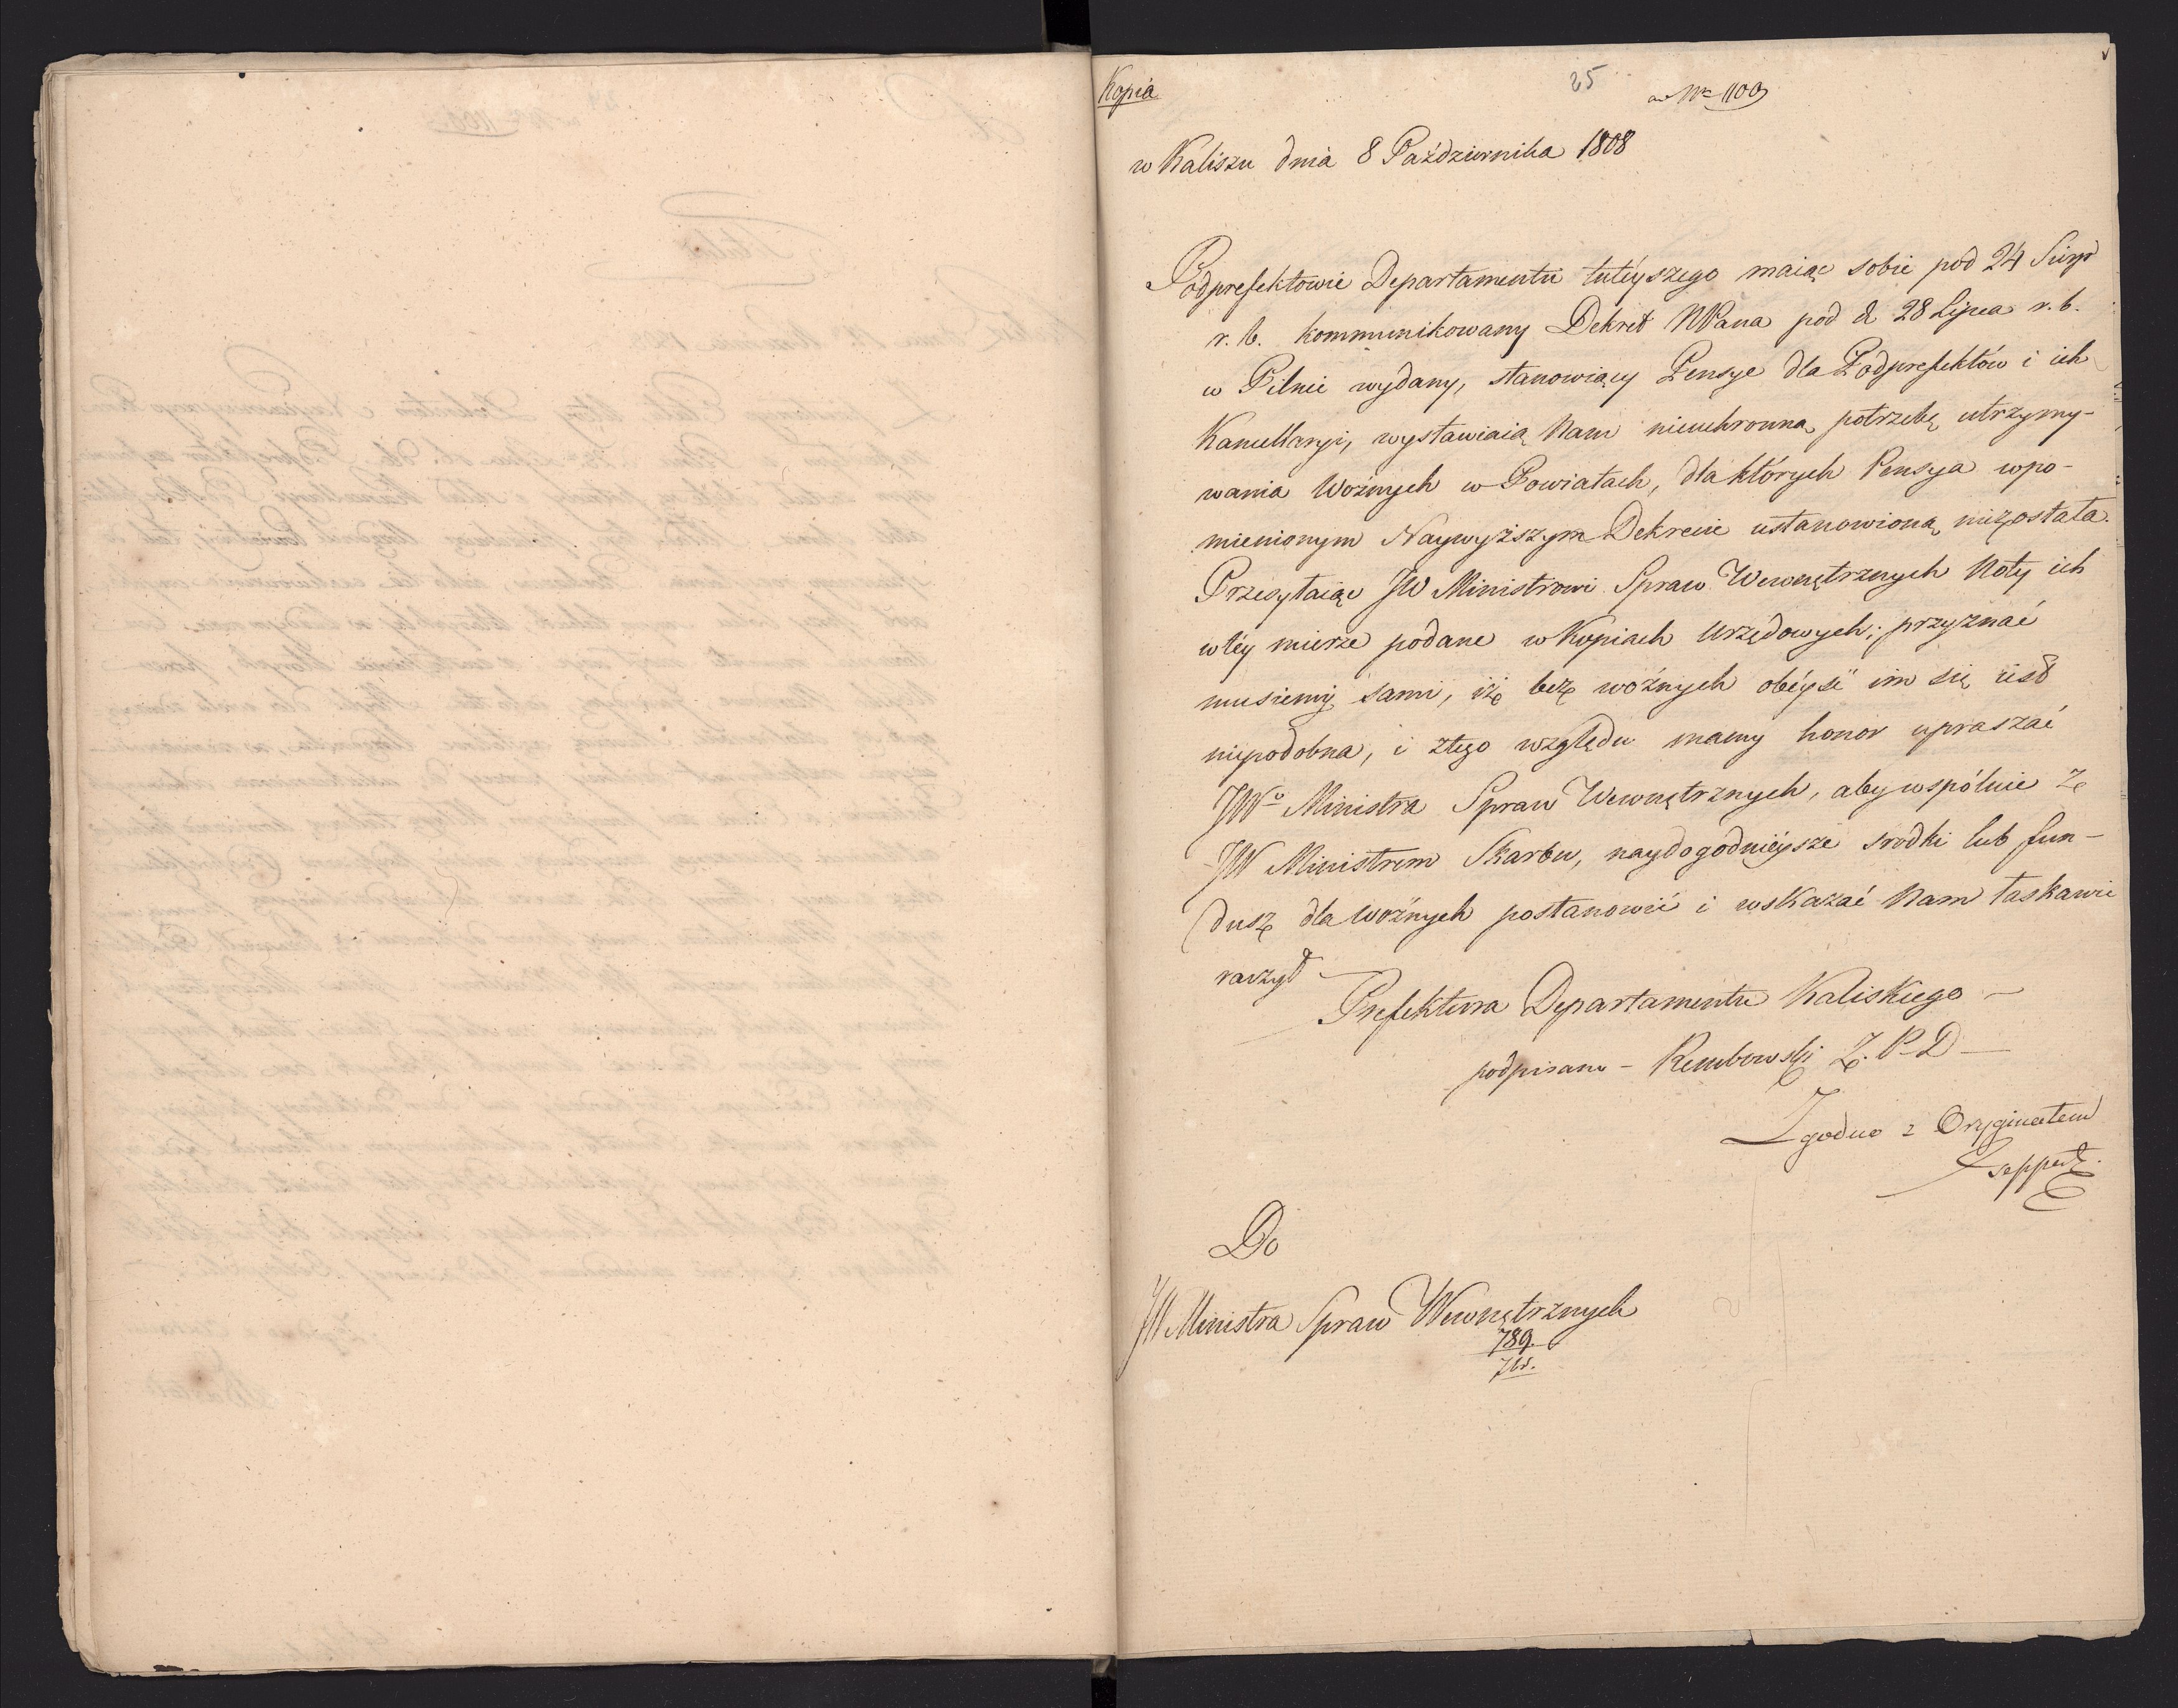 Kopia
25
ad Nr 1100
w Kaliszu dnia 8 Października 1808
Podprefektowie Departamentu tuteyszego maiąc sobie pod 24 Sierp
r. b. kommunikowany Dekret NPana pod d. 28 Lipca r. b.
w Pilnie wydany, stanowiący Pensye dla Podprefektów i ich
Kancellaryi, wystawiaią Nam nieuchronną potrzebę utrzymy-
wania Woźnych w Powiatach, dla których Pensya wpo-
mienionym Naywyższym Dekrecie ustanowioną niezostała.
Przesyłaiąc JW Ministrowi Spraw Wewnętrznych Noty ich
w téy mierze podane w Kopiach Urzędowych; przyznać
musiemy sami, iż bez woźnych obéyść im się iest
niepodobna, i ztego względu mamy honor upraszać
JWo Ministra Spraw Wewnętrznych, aby wspólnie z
JW Ministrem Skarbu, naydogodnieysze srodki lub fun-
dusz dla Woźnych postanowić i wskazać Nam łaskawie
raczył
Prefektura Departamentu Kaliskiego
podpisano - Rembowski Z. P. D
Zgodno z Oryginałem
Do
JW Ministra Spraw Wewnętrznych
789.